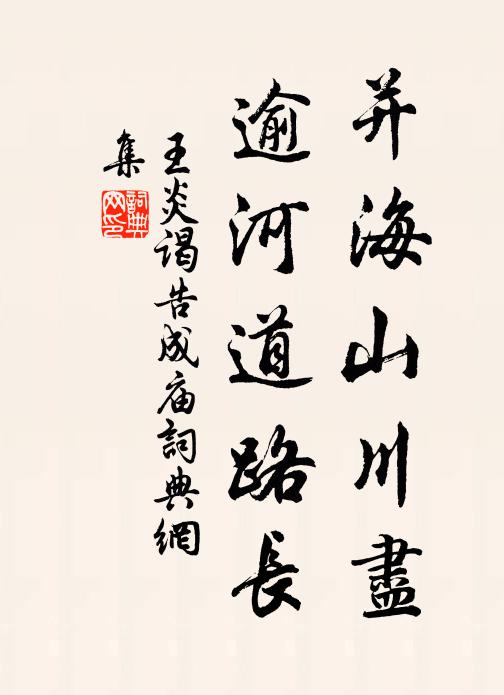 并海山川盡
逾河道路長
王炎谒告成庙詞典網
集
詞典
网印